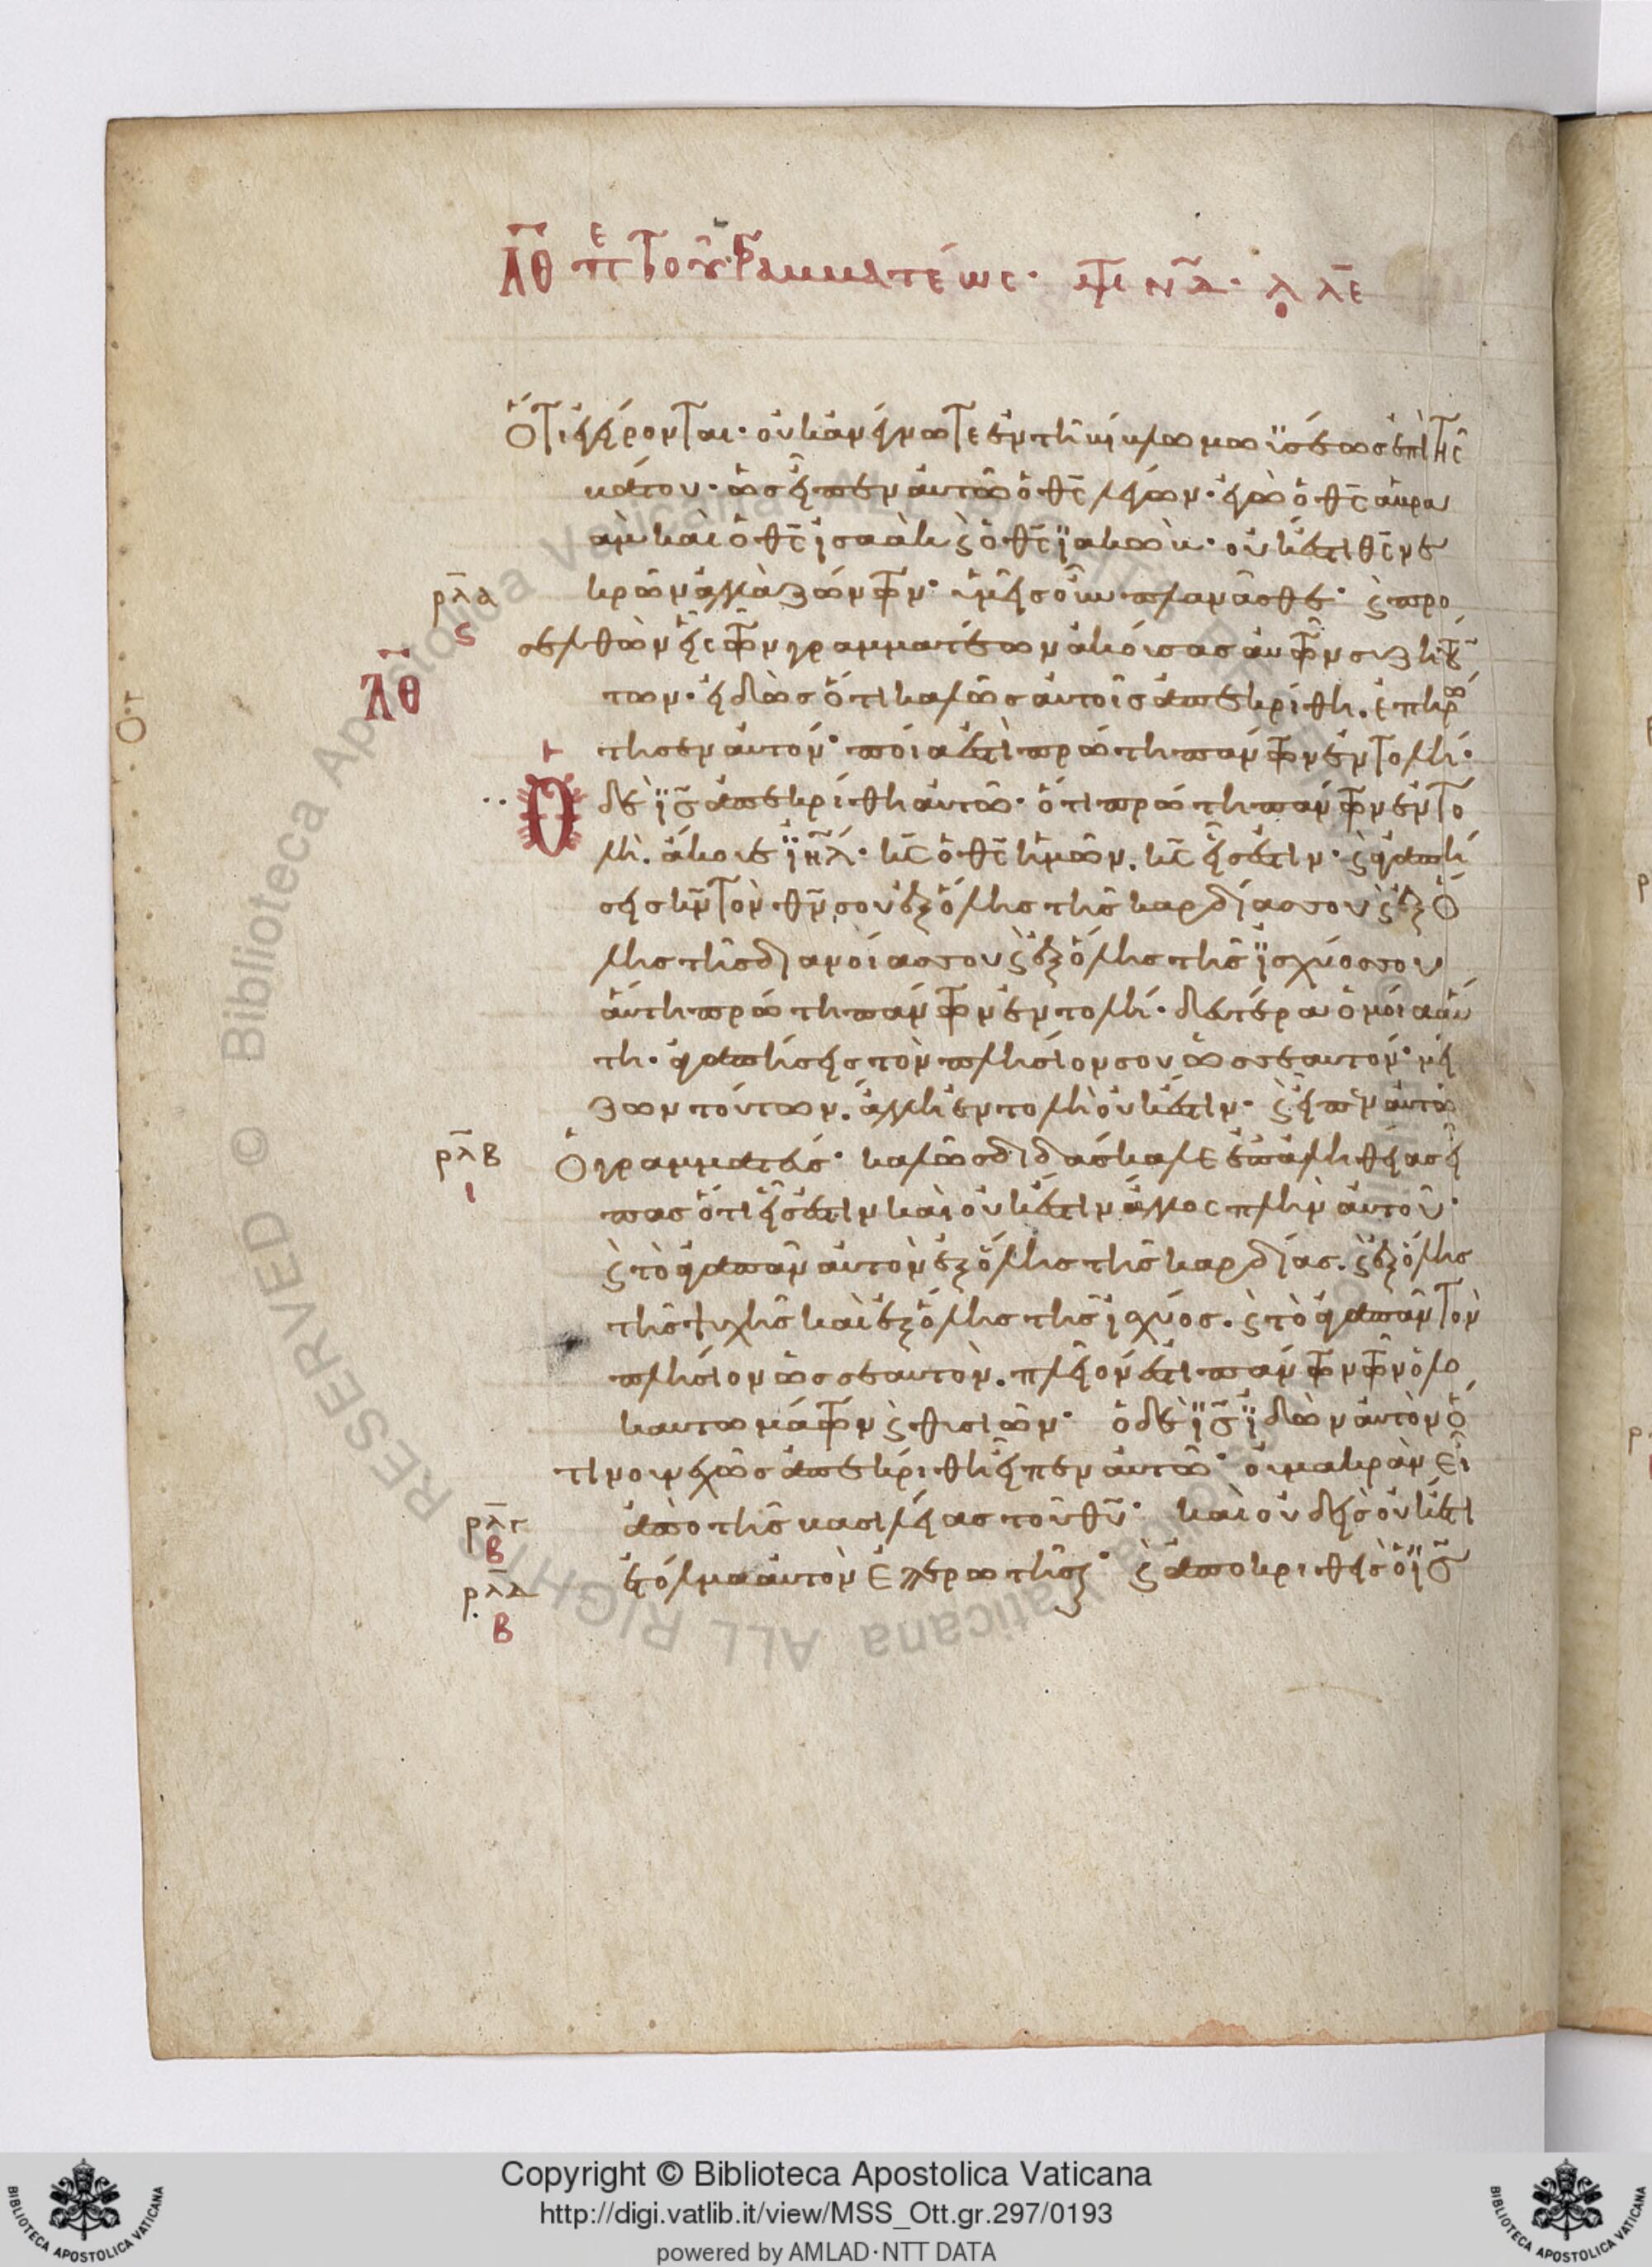 Λ̅Θ̅ πε τοῦ Γραμματέως· Μτ ΝΔ̅· Λο Λ̅Ε̅
Ὅτι ἐγείρονται· οὐκ ἀνέγνωτε ἐν τῆ βίβλω μωϋσέως ἐπὶ τῆς
βάτου· ὡς εἶπεν αὐτῶ ὁ θ̅ς̅ λέγων· ἐγὼ ὁ θ̅ς̅ ἀβρα
ὰμ καὶ ὁ θ̅ς̅ ἰσαὰκ ϗ ὁ θ̅ς̅ ϊακώβ· οὐκ ἔστι θ̅ς̅ νε
ρ̅λ̅α̅ κρῶν ἀλλὰ ζώντων· ὑμεῖς οὖν πλανᾶσθε· ϗ προ
ς
σελθὼν εἷς τῶν γραμματέων ἀκούσας αὐτῶν συζητούν
Λ̅Θ̅
των· εἰδὼς ὅτι καλῶς αὐτοῖς ἀπεκρίθη. ἐπηρώ
τησεν αὐτόν· ποία ἐστὶ πρώτη πάντων ἐντολή·
Ὁ δὲ ϊ̅ς̅ ἀπεκρίθη αὐτῶ· ὅτι πρώτη πάντων ἐντο
λὴ. ἄκουε ϊ̅η̅λ̅· κ̅ς̅ ὁ θ̅ς̅ ἡμῶν. κ̅ς̅ εἷς ἐστιν· ϗ ἀγαπή
σεις κ̅ν̅ τὸν θ̅ν̅ σου ἐξ ὅλης τῆς καρδίας σου ϗ ἐξ ὅ
λης τῆς διανοίας σου ϗ ἐξ ὅλης τῆς ϊσχύος σου
αὕτη πρώτη πάντων ἐντολή· δευτέρα ὁμοία αὕ
τη· ἀγαπήσεις τὸν πλησίον σου ὡς σεαυτόν· μεί
ζων τούτων. ἄλλη ἐντολὴ οὐκ ἔστιν· ϗ εἶπεν αὐτῶ
ρ̅λ̅β̅ ὁ γραμματεύς· καλῶς διδάσκαλε ἐπ ἀληθείας εἶ
ι
πας ὅτι εἷς ἐστιν καὶ οὐκ ἔστιν ἄλλος πλὴν αὐτοῦ·
ϗ τὸ ἀγαπᾶν αὐτὸν ἐξ ὅλης τῆς καρδίας. ϗ ἐξ ὅλης
τῆς ψυχῆς καὶ ἐξ ὅλης τῆς ἰσχύος. ϗ τὸ ἀγαπᾶν τὸν
πλησίον ὡς σεαυτὸν. πλεῖόν ἐστι πάντων τῶν ὁλο
καυτωμάτων ϗ θυσιῶν· ὁ δὲ ϊ̅ς̅ ϊδὼν αὐτὸν ὅ
τι νουνεχῶς ἀπεκρίθη εἶπεν αὐτῶ· οὐ μακρὰν εἶ
ρ̅λ̅γ̅ ἀπὸ τῆς βασιλείας τοῦ θ̅υ̅· καὶ οὐδεὶς οὐκέτι
β
ρ̅λ̅δ̅ ἐτόλμα αὐτὸν ἐπερωτῆσαι· ϗ ἀποκριθεὶς ὁ ϊ̅ς̅
β
Copyright © Biblioteca Apostolica Vaticana
http://digi.vatlib.it/view/MSS_Ott.gr.297/0193
powered by AMLAD·NTT DATA